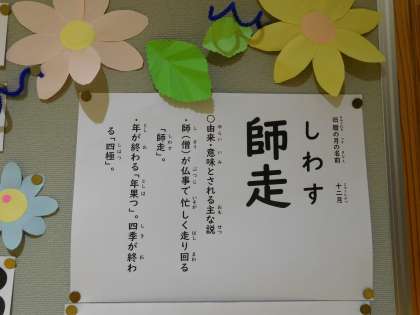 旧暦の月の名前　十二月
しわす
師走
○由来・意味とされる主な説
・師（僧）が仏事で忙しく走り回る
「師走」。
・年が終わる「年果つ」。四季が終わ
る「四極」。